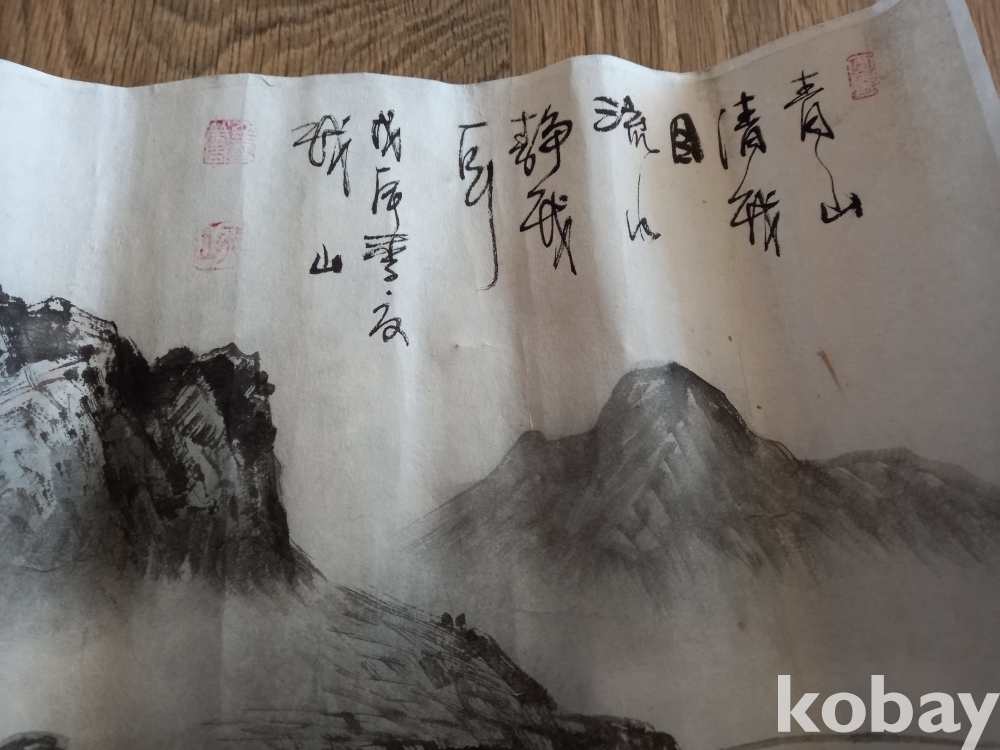 青山
清我
目
流水
静我
耳
戊辰
山
kobay